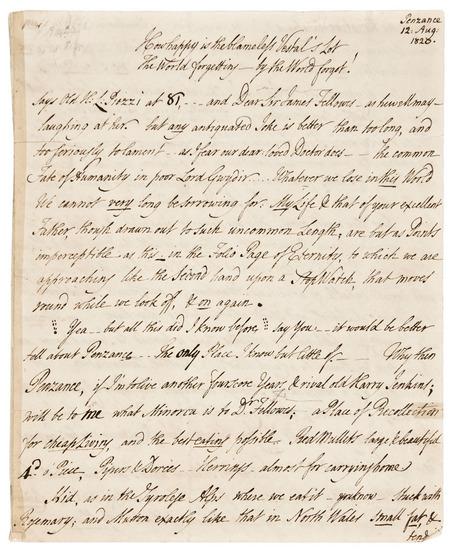 Penzance
12: Aug:
1820.
How happy is the blameless Vestal's Lot
The World forgetting — by the World forgot!
Says Old H: L: Piozzi at 81, ... and Dear Sir James Fellowes — as he well may —
laughing at her. but any antiquated Joke is better than too long, and
too seriously to lament — as I fear our dear loved Doctor does — the common
Fate of Humanity in poor Lord Gwydir ... Whatever we lose in this World
We cannot very long be sorrowing for. My Life & that of your excellent
Father though drawn out to such uncommon Length, are but as Points
imperceptible as this — in the Folio Page of Eternity, to which we are
approaching like the Second hand upon a Stop Watch, that moves
round while we look off, & on again.
Yea — but all this did I know before say You — it would be better
tell about Penzance ... the only Place I know but little of — Why then
Penzance, if I m to live another fourscore Years, & rival old Harry Jenkins;
will be to me what Minorca is to Dr. Fellowes; a Place of Recollection
for cheap Living, and the best eating possible. Red Mullets large & beautiful
4d. a Piece, Pipers & Dories — Herrings almost for carrying home
Kid, as in the Tyrolese Alps where we eat it — you know — stuck with
Rosemary; and Mutton exactly like that in North Wales small fat, &
tend